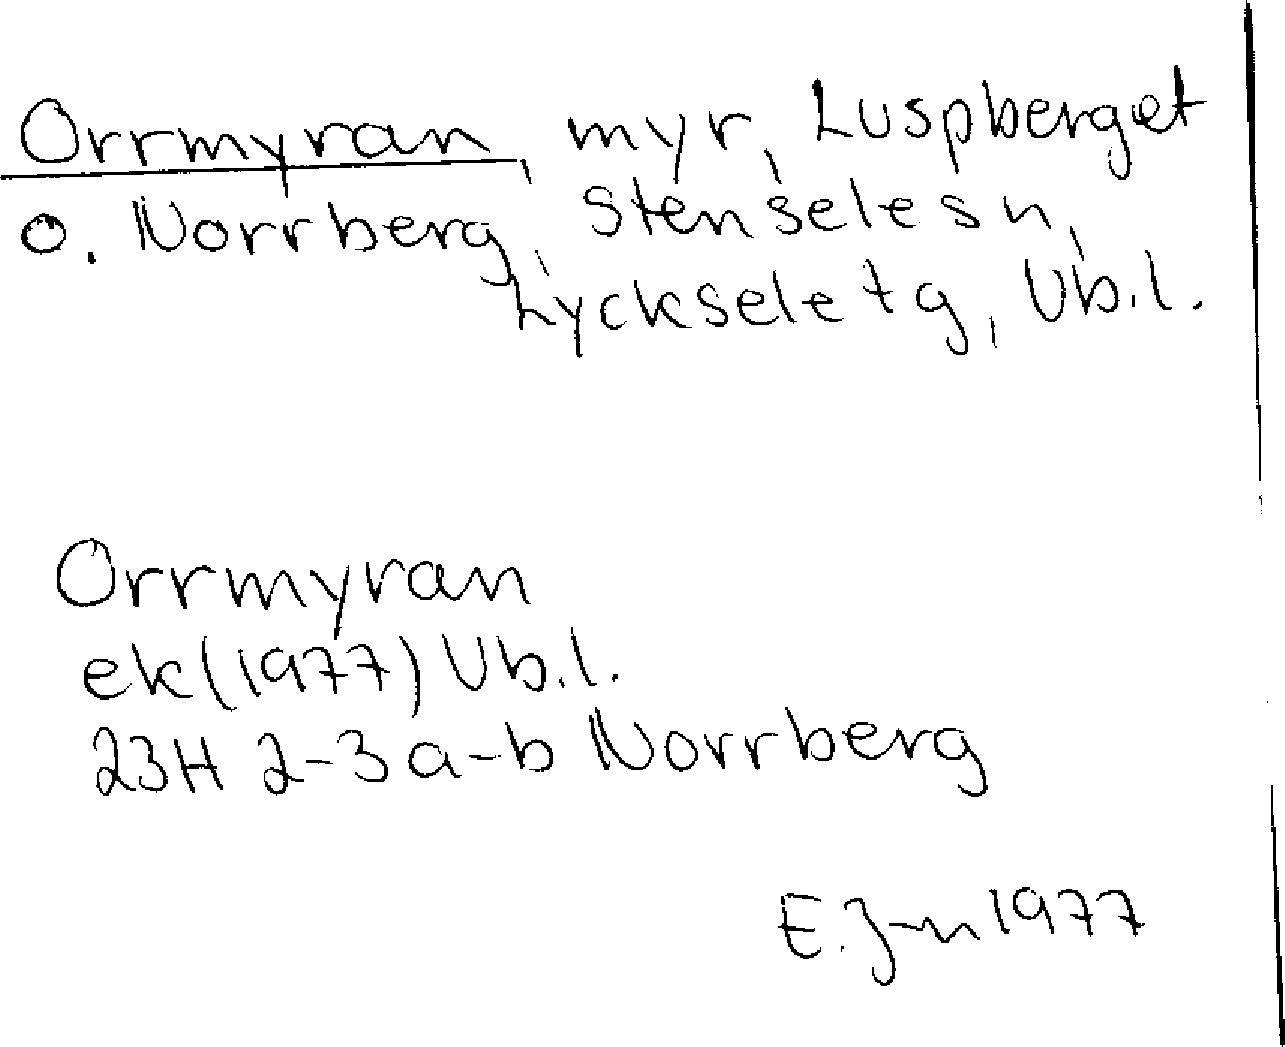 Orrmyran, myr, Luspberget
o. Norrberg, Stensele sn,
Lycksele tg, Vb.l.
Orrmyran
ek (1977) Vb.l.
23H 2-3 a-b Norrberg
E. J-n 1977